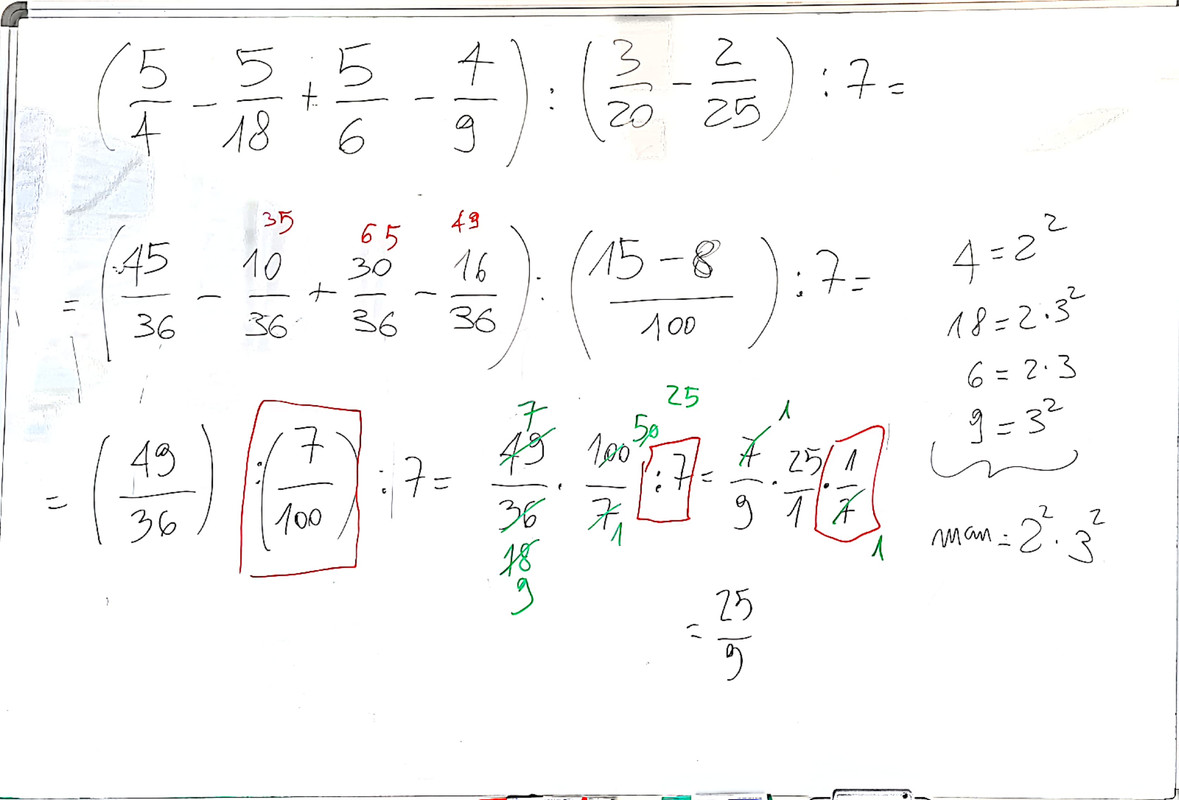 (5/4 - 5/18 + 5/6 - 4/9) : (3/20 - 2/25) : 7 =
35 65 49
= (45/36 - 10/36 + 30/36 - 16/36) : ((15 - 8)/100) : 7 =
4 = 2²
18 = 2·3²
6 = 2·3
9 = 3²
mcm = 2²·3²
7 50 25 1
= (49/36) : (7/100) : 7 = 49/36 · 100/7 : 7 = 7/9 · 25/1 · 1/7
18 1 1
9
= 25/9